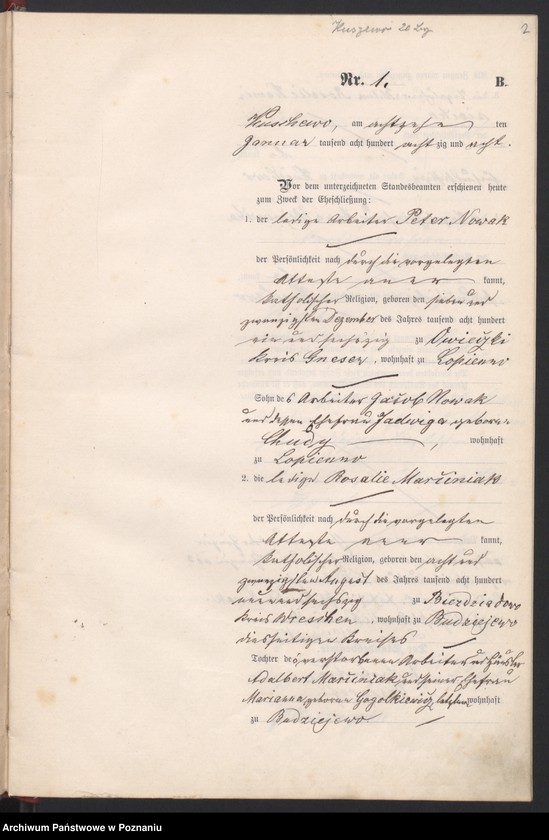 Kuszewo 20 Lg
2
Nr. 1.
B.
Kuschewo, am achtzehn ten
Januar tausend acht hundert achtzig und acht.
Vor dem unterzeichneten Standesbeamten erschienen heute
zum Zweck der Eheschließung:
1. der ledige Arbeiter Peter Nowak
der Persönlichkeit nach durch die vorgelegten
Atteste aner kannt,
katholischer Religion, geboren den sieben und
zwanzigsten Dezember des Jahres tausend acht hundert
ein und sechszig zu Owieczki
Kreis Gnesen, wohnhaft zu Lopienno
Sohn des Arbeiters Jacob Nowak
und dessen Ehefrau Jadwiga geborene
Chudy, wohnhaft
zu Lopienno
2. die ledige Rosalie Marciniak
der Persönlichkeit nach durch die vorgelegten
Atteste aner kannt,
katholischer Religion, geboren den acht und
zwanzigsten August des Jahres tausend acht hundert
neun und sechszig zu Bierdziadowo
Kreis Wreschen, wohnhaft zu Budziejewo
diesseitigen Kreises
Tochter des verstorbenen Arbeiters und Häusler
Adalbert Marciniak und seiner Ehefrau
Marianna, geborene Gogolkiewicz, letztere wohnhaft
zu Budziejewo
Archiwum Państwowe w Poznaniu